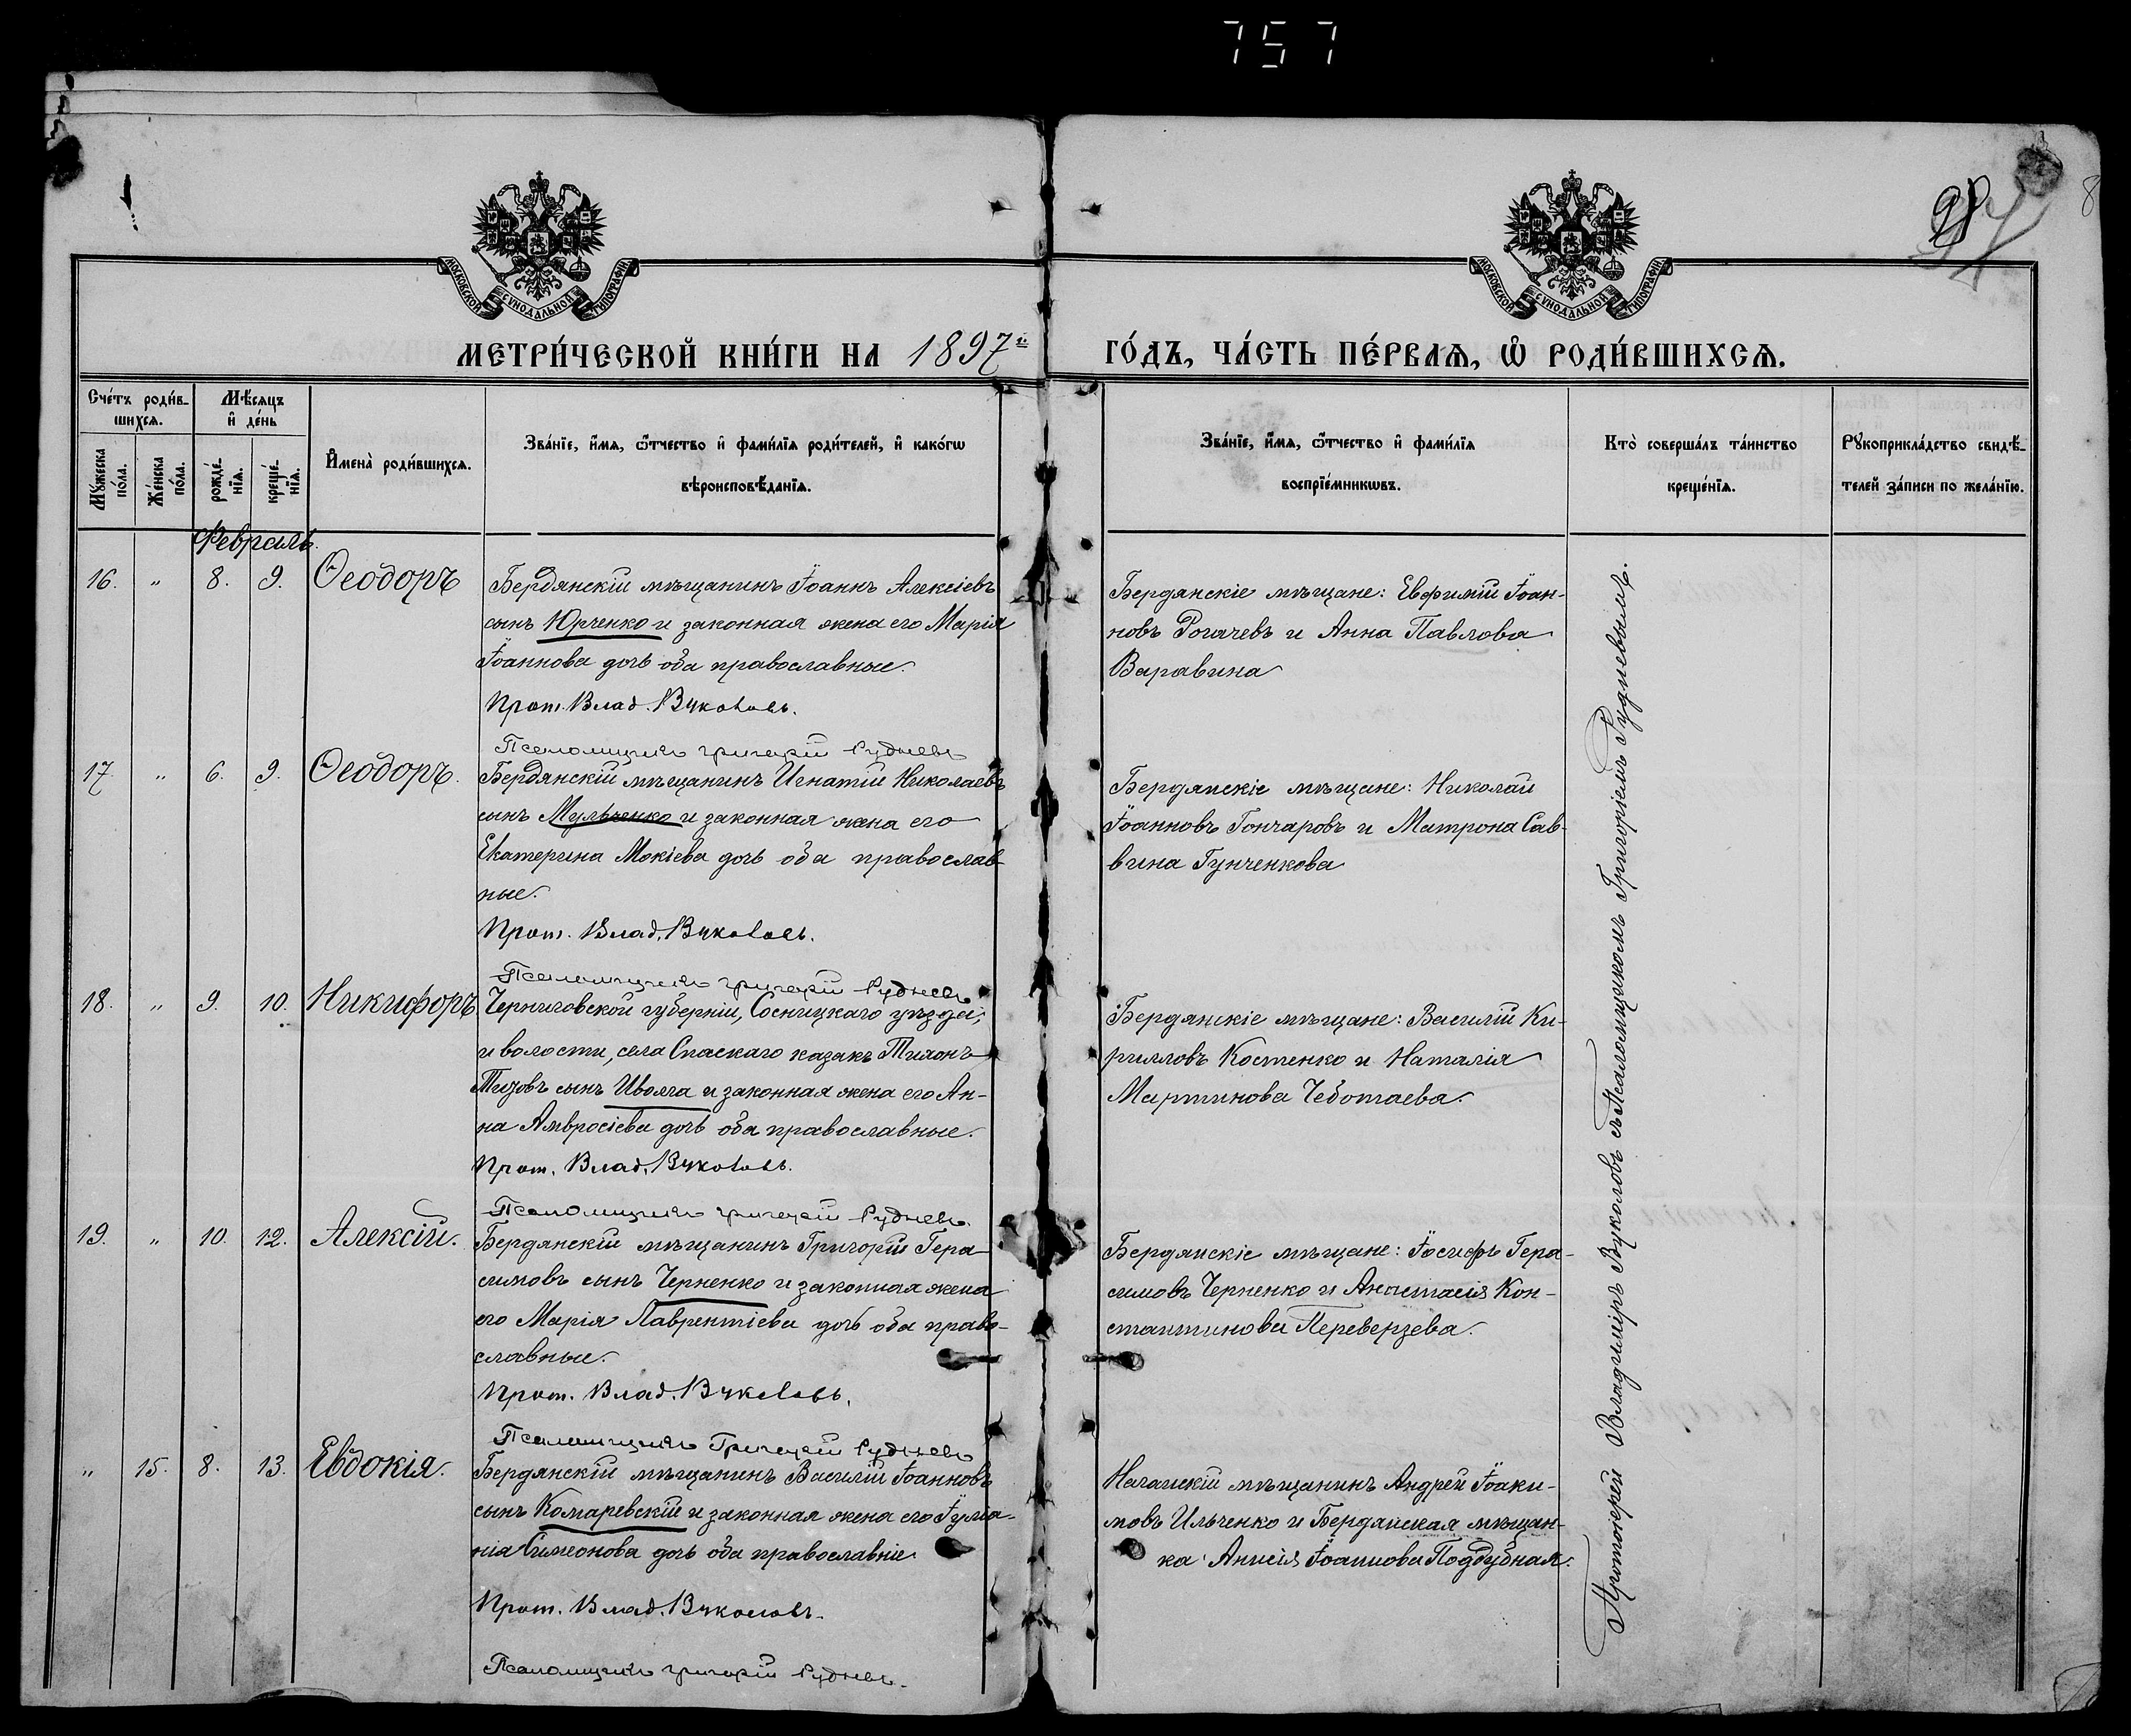 757
98
8
МОСКОВСКОЙ СѴНОДАЛЬНОЙ ТИПОГРАФІИ
МОСКОВСКОЙ СѴНОДАЛЬНОЙ ТИПОГРАФІИ
МЕТРИ́ЧЕСКОЙ КНИ́ГИ НА 1897й ГО́ДЪ, ЧА́СТЬ ПЕ́РВАѦ, Ѽ РОДИ́ВШИХСѦ.
Сче́тъ роди́в-
шихсѧ.
Мѣ́сяцъ
и҆ де́нь
Мꙋ́жеска
по́ла.
Же́нска
по́ла.
рожде́-
нїѧ.
креще́-
нїѧ.
И҆мена̀ роди́вшихсѧ.
Зва́нїе, и҆́мѧ, ѻ҆́тчество и҆ фами́лїѧ роди́телей, и҆ како́гѡ
вѣроисповѣ́данїѧ.
Зва́нїе, и҆́мѧ, ѻ҆́тчество и҆ фами́лїѧ
воспрїе́мникѡвъ.
Кто̀ соверша́лъ та́инство
креще́нїѧ.
Рꙋкоприкла́дство свидѣ́-
телей за́писи по жела́нїю.
Февраль.
16. „ 8. 9. Ѳеодоръ
Бердянскій мѣщанинъ Іоаннъ Алексіевъ
сынъ Юрченко и законная жена его Марія
Іоаннова дочь оба православные.
Прот. Влад. Вуколовъ.
Псаломщикъ Григорій Рудневъ
Бердянскіе мѣщане: Евфимій Іоан-
новъ Рогачевъ и Анна Павлова
Варавина
17. „ 6. 9. Ѳеодоръ.
Бердянскій мѣщанинъ Игнатій Николаевъ
сынъ Мульченко и законная жена его
Екатерина Мокіева дочь оба православ-
ные.
Прот. Влад. Вуколовъ.
Псаломщикъ Григорій Рудневъ
Бердянскіе мѣщане: Николай
Іоанновъ Гончаровъ и Матрона Сав-
вина Гунченкова
18. „ 9. 10. Никифоръ
Черниговской губерніи, Сосницкаго уѣзда,
и волости, села Спаскаго казакъ Тихонъ
Титовъ сынъ Иволга и законная жена его Ан-
на Амвросіева дочь оба православные.
Прот. Влад. Вуколовъ.
Псаломщикъ Григорій Рудневъ
Бердянскіе мѣщане: Василій Ки-
рилловъ Костенко и Наталія
Мартинова Чеботаева.
19. „ 10. 12. Алексій.
Бердянскій мѣщанинъ Григорій Гера-
симовъ сынъ Черненко и законная жена
его Марія Лаврентіева дочь оба право-
славные.
Прот. Влад. Вуколовъ.
Псаломщикъ Григорій Рудневъ
Бердянскіе мѣщане: Іосифъ Гера-
симовъ Черненко и Анастасія Кон-
стантинова Переверзева.
„ 15. 8. 13. Евдокія.
Бердянскій мѣщанинъ Василій Іоанновъ
сынъ Комаревскій и законная жена его Іуліа-
нія Симеонова дочь оба православніе
Прот. Влад. Вуколовъ.
Псаломщикъ Григорій Рудневъ.
Ногайскій мѣщанинъ Андрей Іоаки-
мовъ Ильченко и Бердянская мѣщан-
ка Анисія Іоаннова Поддубная.
Протоіерей Владиміръ Вуколовъ съ Псаломщикомъ Григоріемъ Рудневымъ.